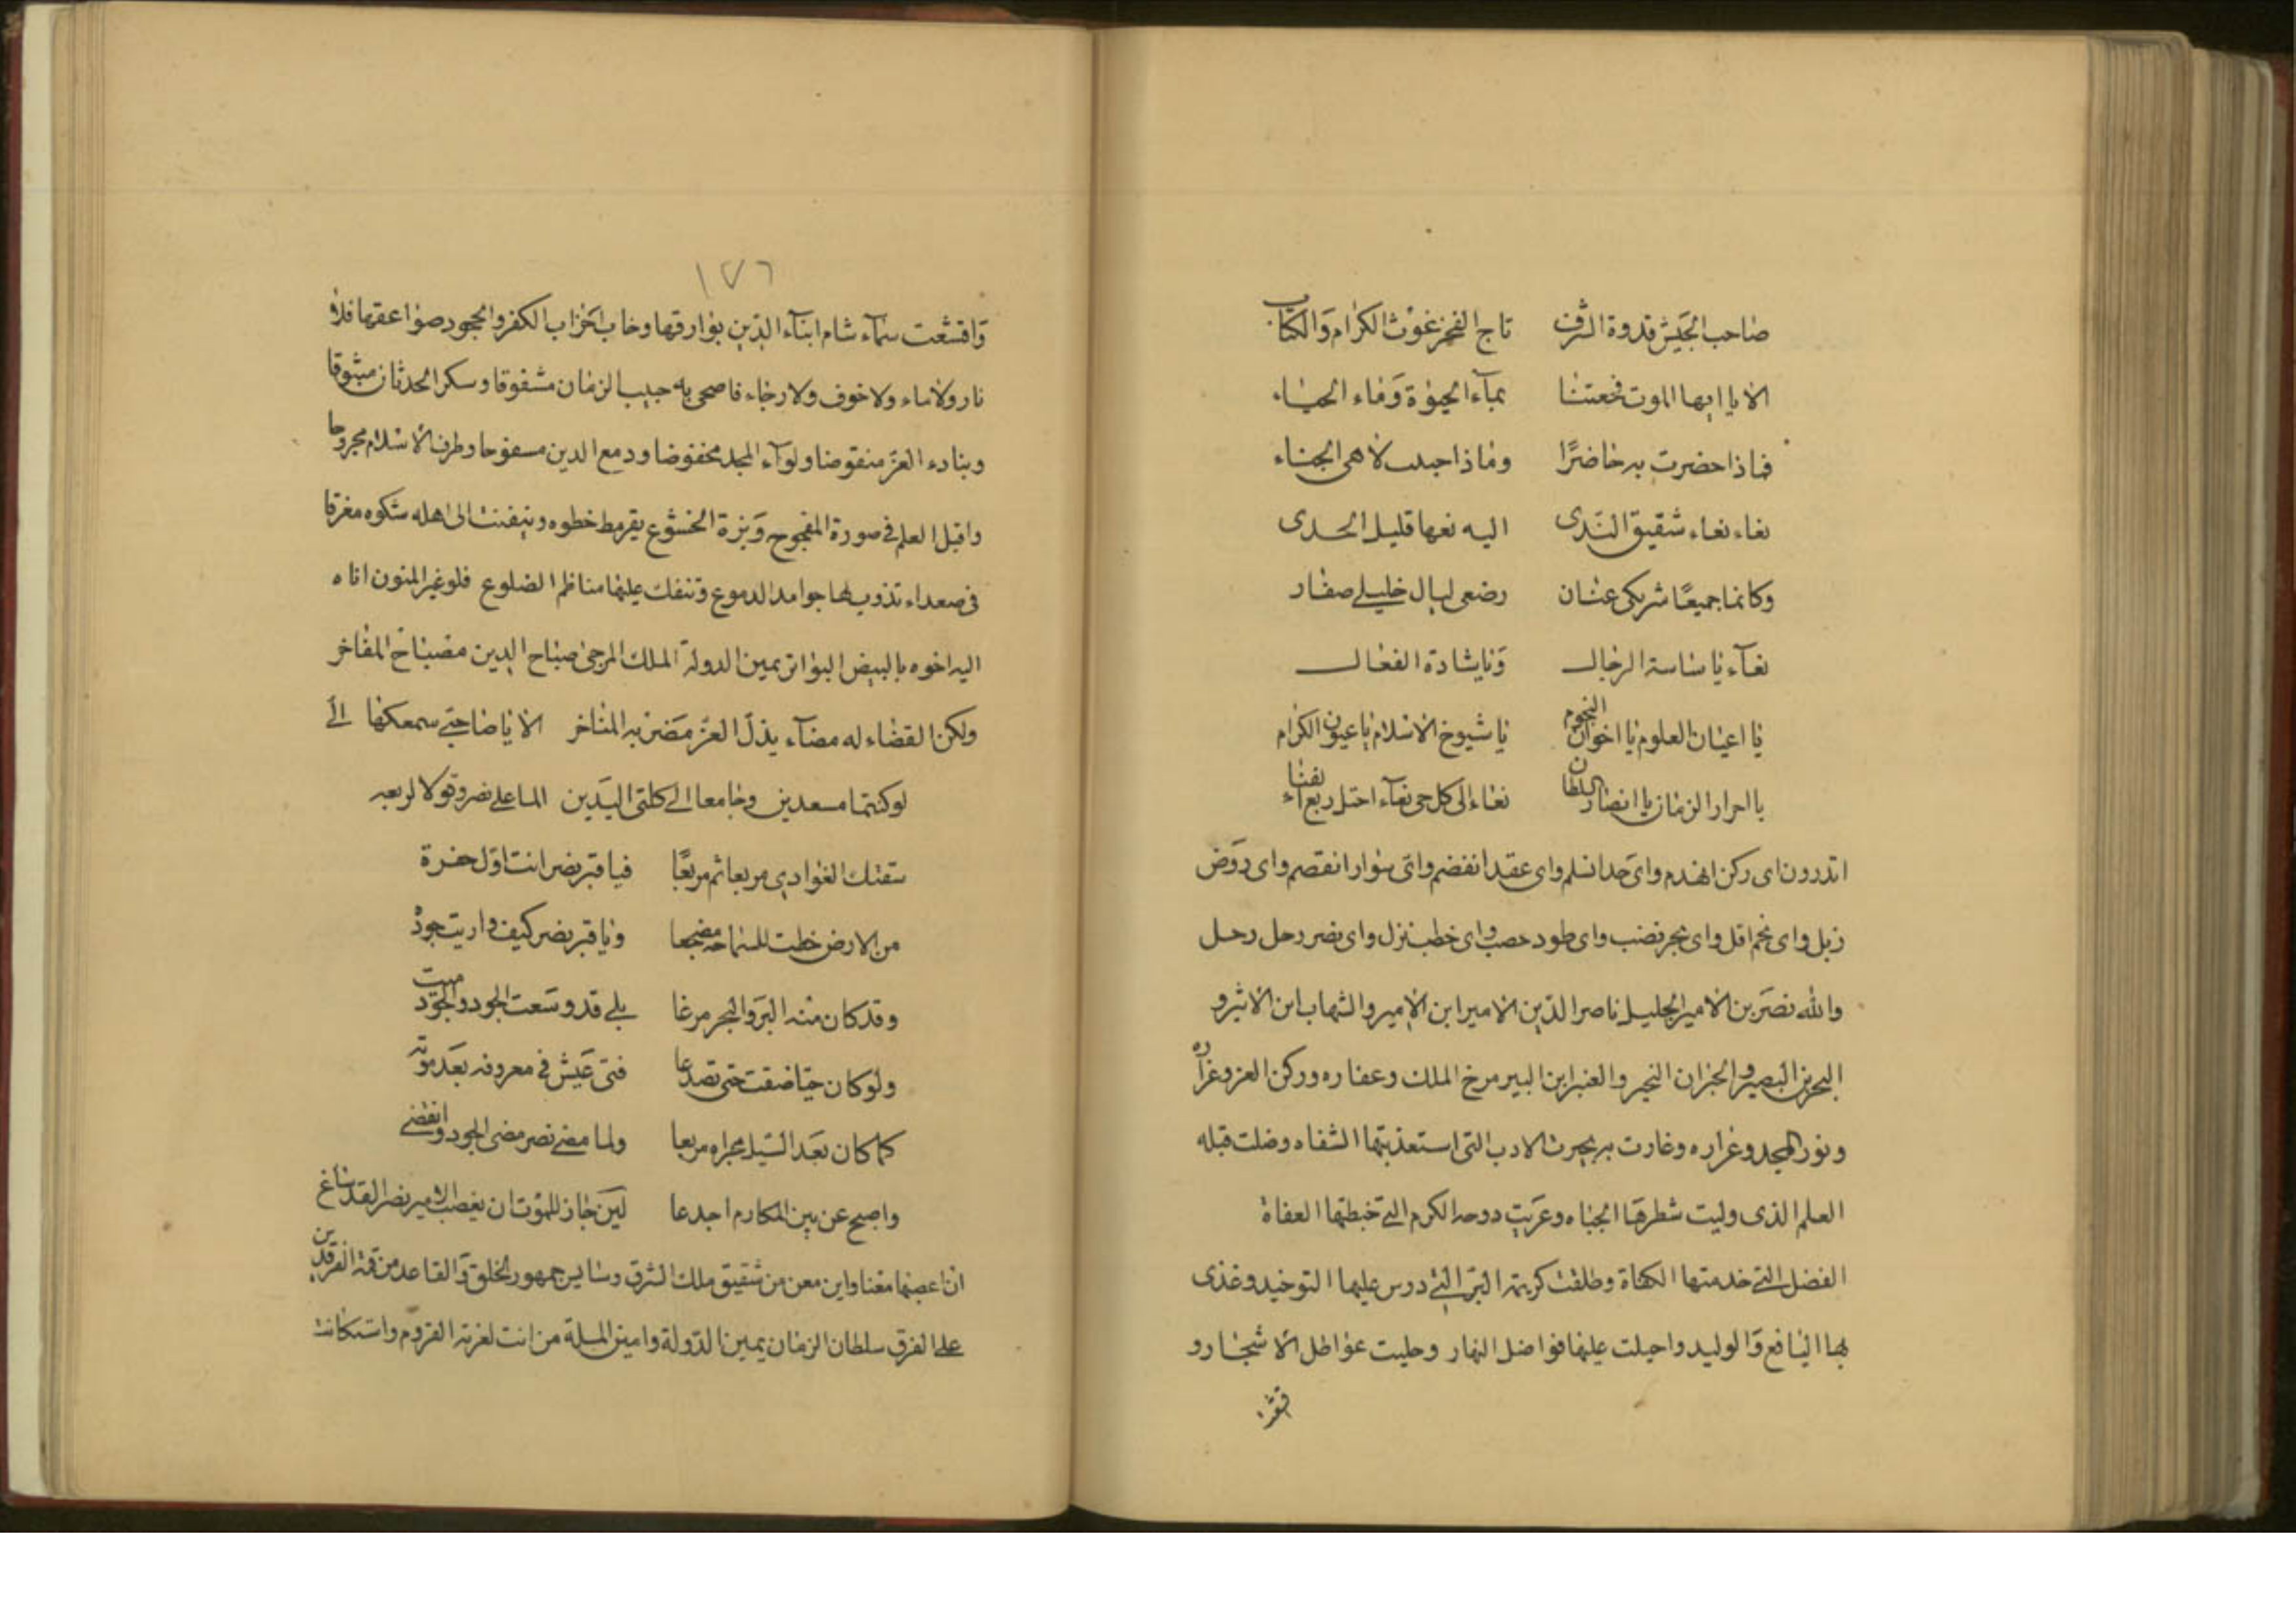 صاحب الجيش قدوة الشرف تاج الفخر غوث الكرام والكتاب
الا يا ايها الموت فجعتنا بمآء الحيوة وماء الحياء
فماذا حضرت به حاضرًا وماذا لاهى الجناء
نعاء نعاء شقيق الندى اليه نعها قليل الحدى
وكانما جميعًا شريكى عنان رضعى خليلى صفار
نعآء يا ساسة الرجال ويا شادة الفعال
يا اعيان العلوم يا اخوان النجوم يا شيوخ الاسلام يا عيون الكرام
يا احرار الزمان يا انصار السلطان نعاء الى كل حى نعآء احتل ربع
اتدرون اى ركن انهدم واى حد انسلم واى عقد انفضم واى سوار انقصم واى روض
زبل واى نجم افل واى بحر نضب واى طود حصب واى خطب نزل واى نصر رحل رحل
والله نصر بن الامير الجليل ناصر الدين الامير ابن الامير والشهاب ابن الاثير و
البحر ابن البصير والعنبر ابن مرخ الملك وعفاره وركن العز وغراره
ونور المجد وغراره وغارت به بحيرت الادب التى استعذبتها الشفاه وضلت قبله
العلم الذى وليت شطرها الجباه وعريت دوحه الكرم التى خبطتها العفاة
الفضل التى خدمتها الكفاة وطلقت كريمة البر التى درس عليها التوحيد وغذى
بها اليافع والوليد واحيلت عليها فواضل النهار وحليت عواطل الاشجار و
١٧٦
واقشعت سمآء شام ابنآء الدين بوارقها وخاب احزاب الكفر والجحود صواعقها فلا
نار ولا ماء ولا خوف ولا رجاء فاضحى به جيب الزمان مشقوقا وسكر الحدثان مبثوقا
وبناء العز منقوضا ولوآء المجد مخفوضا ودمع الدين مسفوحا وطرف الاسلام مجروحا
واقبل العلم فى صورة المفجوع وبزة الخشوع يقرمط خطوه الى اهله شكوه مغرقا
فى صعداء تذوب لها جوامد الدموع وتنفك عليها مناظم الضلوع فلو غير المنون اتاه
اليه اخوه بالبيض البواتر يمين الدولة الملك المرجى صباح الدين مصباح المفاخر
ولكن القضاء له مضآء يذل العز مضربه المناخر الا يا صاحبى سمعكما الى
لو كنتما مسعدين وجامعا الى كلتى اليدين الما على نصر وقولا لربعه
سقتك الغوادى مربعا ثم مربعًا فيا قبر نصر انت اول حفرة
من الارض خطت للسماحة مضجعا ويا قبر نصر كيف واريت جوده
وقد كان منه البر والبحر مرغا بلى قد وسعت الجود والجود ميت
ولو كان حيا ضقت حتى تصدعا فتى عيش فى معروفه بعد موته
كما كان بعد السيل مجراه مربعا ولما مضى نصر مضى الجود وانقضى
واصبح عرنين المكارم اجدعا لين جاز للموت ان يغصب الامير نصر القد ساغ
ان اعصبها معنا واين معن من شقيق ملك الشرق وسايس جمهور الخلق والقاعد من قمة الفرقدين
على الفرق سلطان الزمان يمين الدولة وامين الملة من لعزته القروم واستكانت